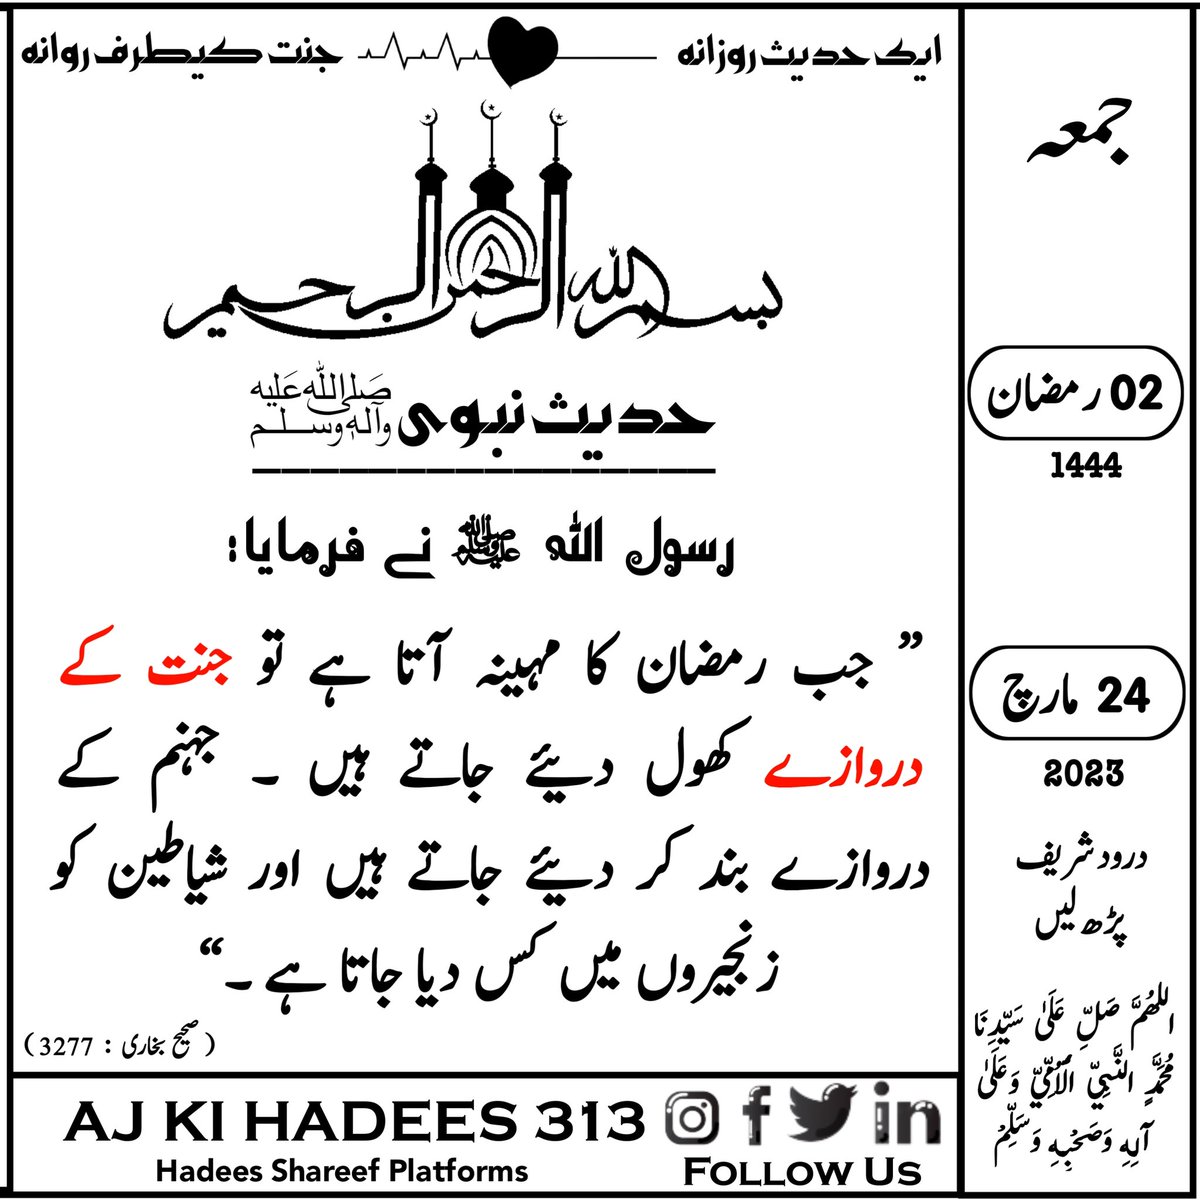 ایک حدیث روزانہ جنت کیطرف روانہ
بسم الله الرحمن الرحيم
حدیث نبوی صَلَّى اللهُ عَلَيْهِ وَآلِهِ وَسَلَّم
رسول اللہ ﷺ نے فرمایا:
” جب رمضان کا مہینہ آتا ہے تو جنت کے
دروازے کھول دیئے جاتے ہیں ۔ جہنم کے
دروازے بند کر دیئے جاتے ہیں اور شیاطین کو
زنجیروں میں کس دیا جاتا ہے ۔“
( صحیح بخاری : 3277 )
جمعہ
02 رمضان
1444
24 مارچ
2023
درود شریف
پڑھ لیں
اللهُمَّ صَلِّ عَلَىٰ سَيِّدِنَا
مُحَمَّدٍ النَّبِيِّ الْأُمِّيِّ وَعَلَىٰ
آلِهِ وَصَحْبِهِ وَسَلِّمْ
AJ KI HADEES 313
Hadees Shareef Platforms
FOLLOW US